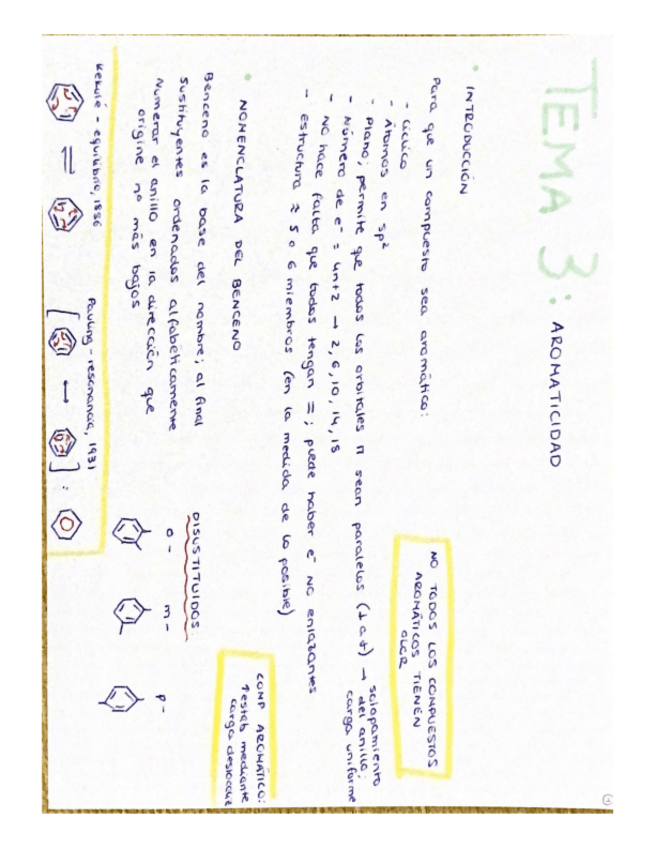 TEMA 3: AROMATICIDAD
• INTRODUCCIÓN
Para que un compuesto sea aromático:
- Cíclico
- Átomos en sp²
- Plano; permite que todos los orbitales π sean paralelos (⊥ a σ) → solapamiento
del anillo;
carga uniforme
- Número de e⁻ = 4n+2 → 2, 6, 10, 14, 18
- No hace falta que todos tengan =; puede haber e⁻ no enlazantes
- estructura ≈ 5 o 6 miembros (en la medida de lo posible)
NO TODOS LOS COMPUESTOS
AROMÁTICOS TIENEN
OLOR
• NOMENCLATURA DEL BENCENO
Benceno es la base del nombre; al final
sustituyentes ordenados alfabeticamente
Numerar el anillo en la dirección que
origine nº más bajos
COMP. AROMÁTICO:
mediante
carga
DISUSTITUIDOS:
o- m- p-
Kekulé - equilibrio, 1856
Pauling - resonancia, 1931